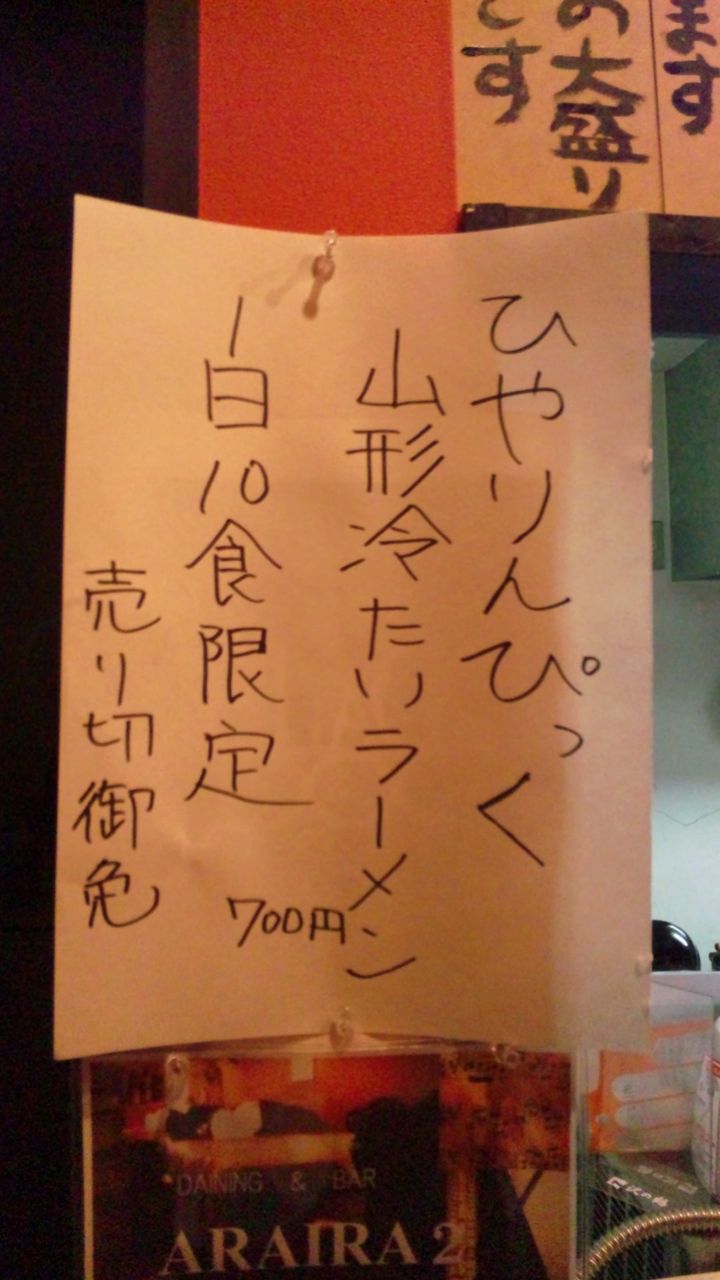 ます
の大盛り
です
ひやりんぴっく
山形冷たいラーメン
700円
1日10食限定
売り切御免
DAINING & BAR
ARAIRA 2